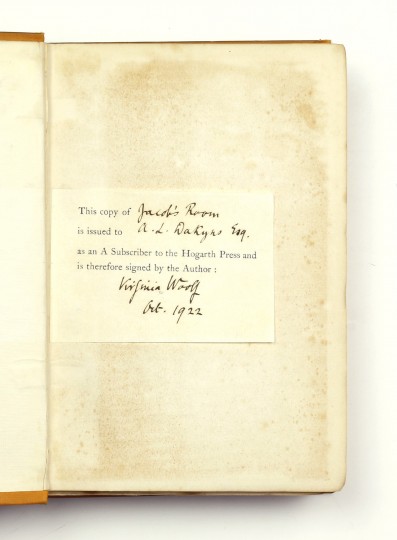 This copy of Jacob's Room
is issued to A. L. Dakyns Esq.
as an A Subscriber to the Hogarth Press and
is therefore signed by the Author :
Virginia Woolf
Oct. 1922